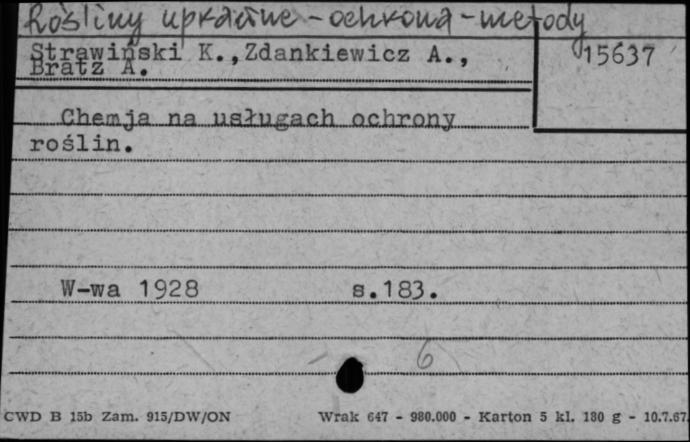 Rośliny uprawne - ochrona - metody
Strawiński K., Zdankiewicz A.,
Bratz A.
15637
Chemja na usługach ochrony
roślin.
W-wa 1928 s.183.
6
CWD B 15b Zam. 915/DW/ON Wrak 647 - 980.000 - Karton 5 kl. 180 g - 10.7.67